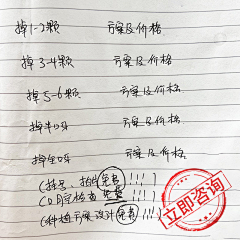 掉1-2颗 方案及价格
掉3-4颗 方案及价格
掉5-6颗 方案及价格
掉半口牙 方案及价格
掉全口牙 方案及价格
(挂号、拍片免费)!!!!
(口腔检查免费)!!!!
(种植方案设计免费)!!!
立即咨询